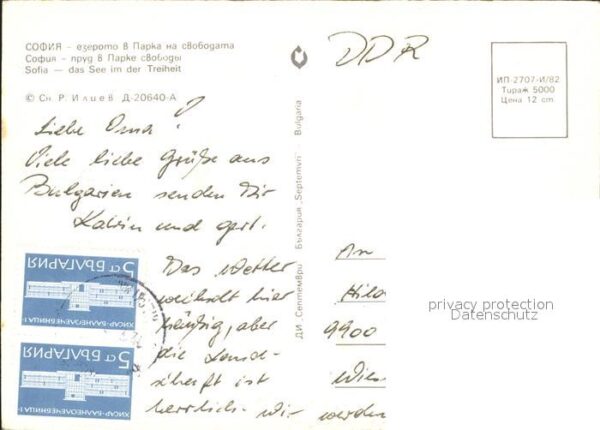 СОФИЯ - езерото в Парка на свободата
София - пруд в Парке свободы
Sofia — das See im der Treiheit
© Сн. Р. Илиев Д-20640-А
DDR
ИП-2707-И/82
Тираж 5000
Цена 12 ст.
Liebe Oma!
Viele liebe Grüße aus
Bulgarien senden Dir
Katrin und Gert.
Das Wetter
wechselt hier
häufig, aber
die Land-
schaft ist
herrlich. Wir werden
ДИ „Септември" България „Septemvri" Bulgaria
An
9900
privacy protection
Datenschutz
5 ст БЪЛГАРИЯ
ХИСАР-БАЛНЕОЛЕЧЕБНИЦА
5 ст БЪЛГАРИЯ
ХИСАР-БАЛНЕОЛЕЧЕБНИЦА